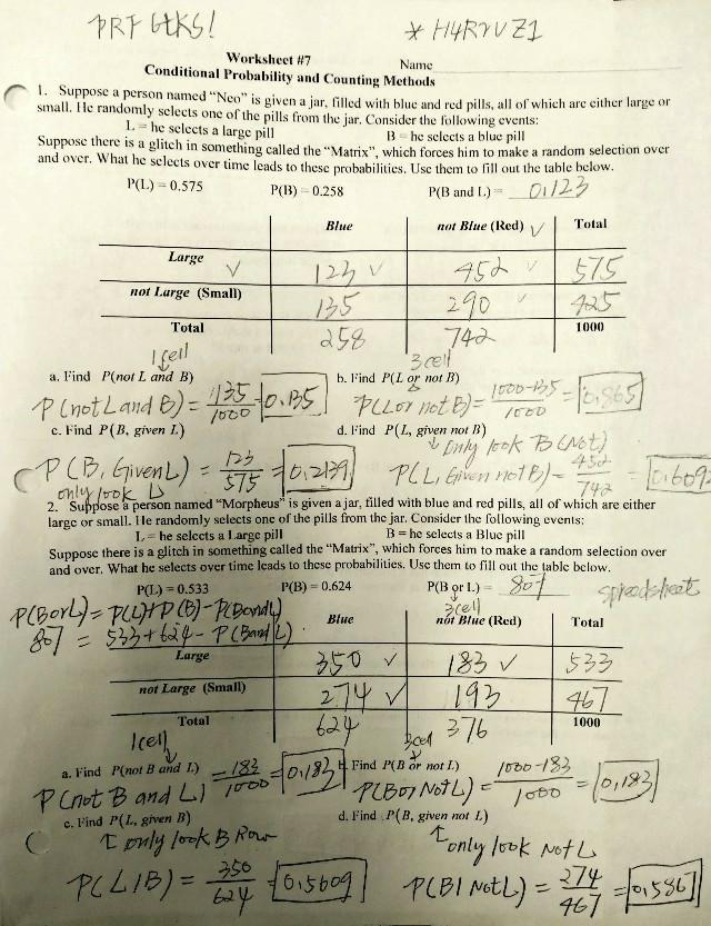 PRF GtKS! * H4R2VZ1
Worksheet #7 Name
Conditional Probability and Counting Methods
1. Suppose a person named "Neo" is given a jar, filled with blue and red pills, all of which are either large or
small. He randomly selects one of the pills from the jar. Consider the following events:
L = he selects a large pill B = he selects a blue pill
Suppose there is a glitch in something called the "Matrix", which forces him to make a random selection over
and over. What he selects over time leads to these probabilities. Use them to fill out the table below.
P(L) = 0.575 P(B) = 0.258 P(B and L) = 0.123
Blue not Blue (Red) ✓ Total
Large ✓ 123 ✓ 452 ✓ 575
not Large (Small) 135 290 ✓ 425
Total 258 742 1000
1 cell 3 cell
a. Find P(not L and B) b. Find P(L or not B)
P(not L and B) = 135/1000 = 0.135 P(L or not B) = 1000-135/1000 = 0.865
c. Find P(B, given L) d. Find P(L, given not B)
↓ Only look B (Not)
P(B, Given L) = 123/575 = 0.2139 P(L, Given not B) = 452/742 = 0.609
only look L
2. Suppose a person named "Morpheus" is given a jar, filled with blue and red pills, all of which are either
large or small. He randomly selects one of the pills from the jar. Consider the following events:
L = he selects a Large pill B = he selects a Blue pill
Suppose there is a glitch in something called the "Matrix", which forces him to make a random selection over
and over. What he selects over time leads to these probabilities. Use them to fill out the table below.
P(L) = 0.533 P(B) = 0.624 P(B or L) = 807 spreadsheet
P(BorL) = P(L)+P(B)-P(BandL) 3 cell
807 = 533+624-P(Band L) Blue not Blue (Red) Total
Large 350 ✓ 183 ✓ 533
not Large (Small) 274 ✓ 193 467
Total 624 376 1000
1 cell 3 cell
a. Find P(not B and L) = 183/1000 = 0.183 b. Find P(B or not L) 1000-183
P(not B and L) P(B or Not L) = 1000 = 0.183
c. Find P(L, given B) d. Find P(B, given not L)
↑ only look B Row ↑ only look Not L
P(L|B) = 350/624 = 0.5609 P(B|Not L) = 274/467 = 0.5867